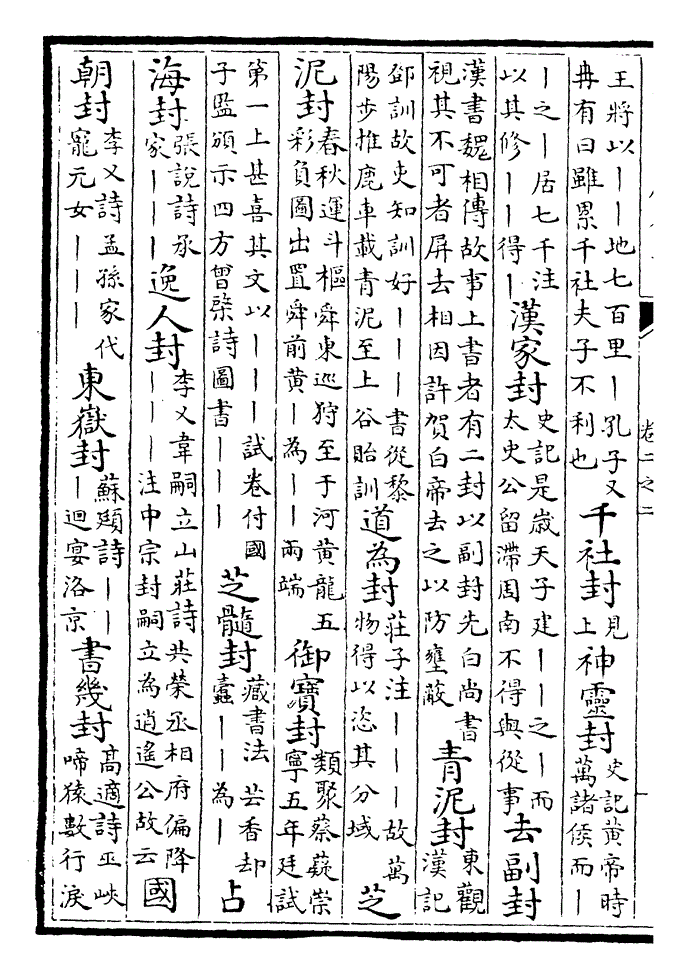 卷二之二
王將以｜｜地七百里｜孔子又
冉有曰雖累千社夫子不利也
千社封
見
上
神靈封
史記黃帝時
萬諸侯而｜
｜之｜居七千注
以其修｜｜得｜
漢家封
史記是歲天子建｜｜之｜而
太史公留滯周南不得與從事
去副封
漢書魏相傳故事上書者有二封以副封先白尚書
視其不可者屏去相因許賀白帝去之以防壅蔽
青泥封
東觀
漢記
邵訓故吏知訓好｜｜｜書從黎
陽步推鹿車載青泥至上谷貽訓
道為封
莊子注｜｜｜故萬
物得以恣其分域
芝
泥封
春秋運斗樞舜東巡狩至于河黃龍五
彩負圖出置舜前黃｜為｜｜兩端
御寶封
類聚蔡薿崇
寧五年廷試
第一上甚喜其文以｜｜｜試卷付國
子監頒示四方曾棨詩圖書｜｜｜
芝髓封
藏書法芸香却
蠹｜｜為｜
占
海封
張說詩承
家｜｜｜
逸人封
李乂韋嗣立山莊詩共榮丞相府偏降
｜｜｜注中宗封嗣立為逍遙公故云
國
朝封
李乂詩孟孫家代
寵元女｜｜｜
東嶽封
蘇頲詩｜｜
｜迴宴洛京
書幾封
高適詩巫峽
啼猿數行淚